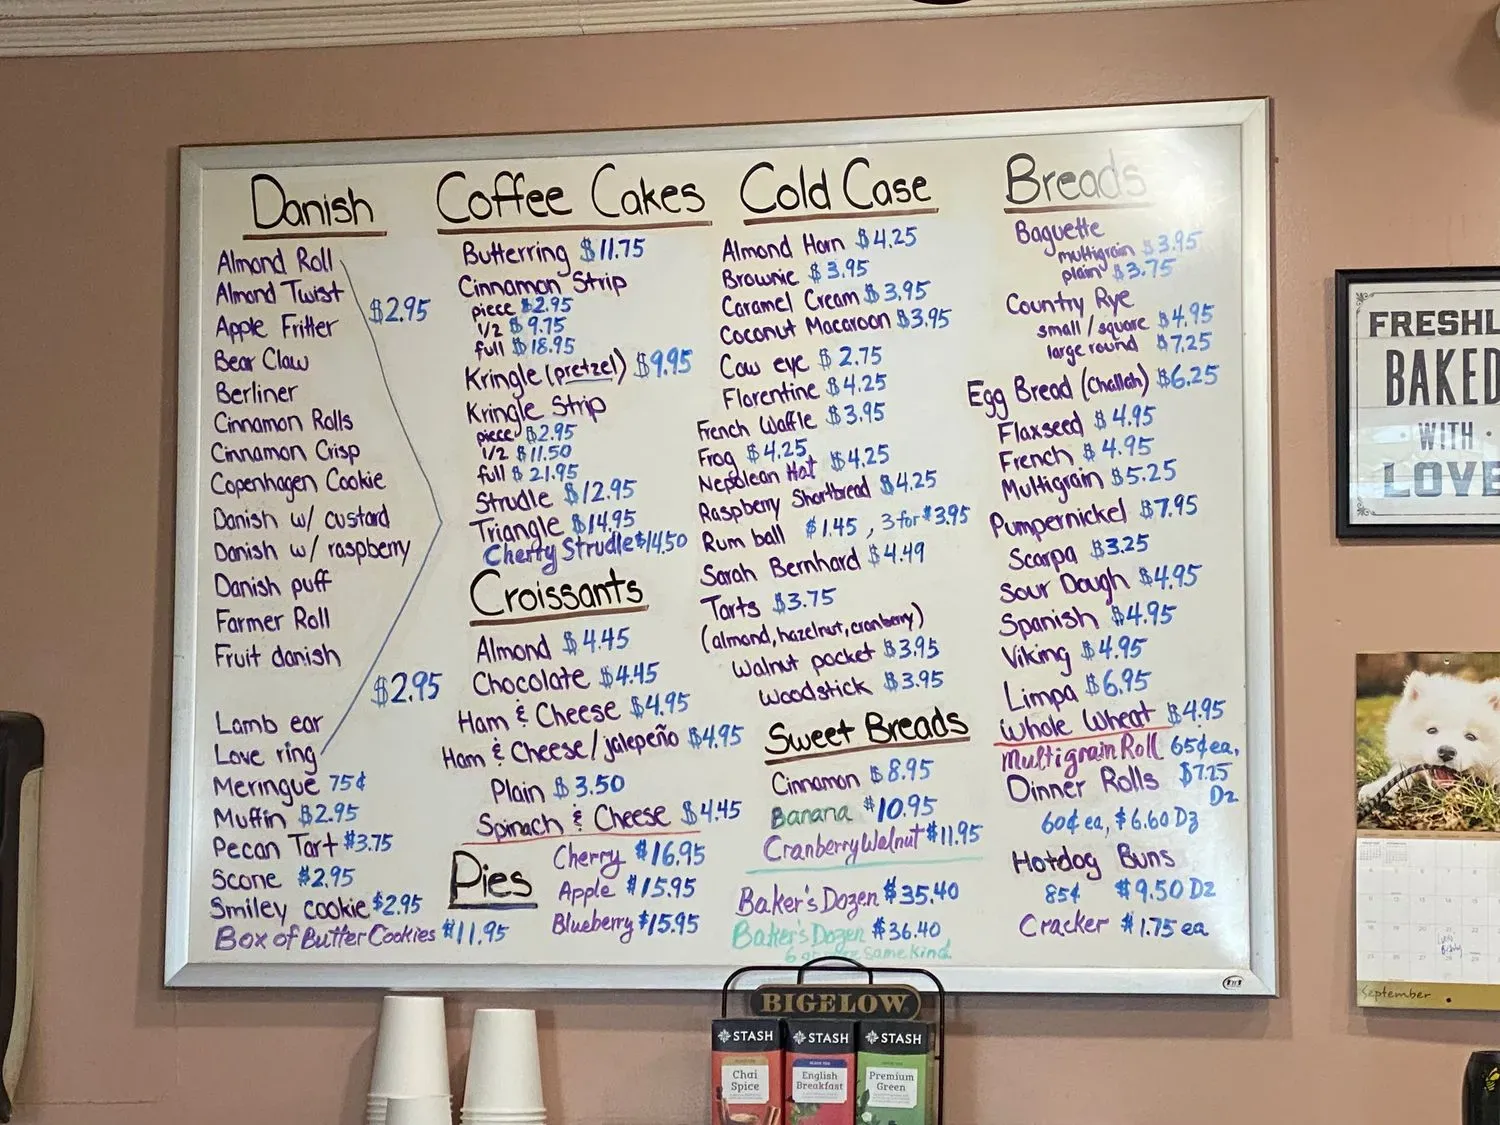 Danish
Almond Roll
Almond Twist
$2.95
Apple Fritter
Bear Claw
Berliner
Cinnamon Rolls
Cinnamon Crisp
Copenhagen Cookie
Danish w/ custard
Danish w/ raspberry
Danish puff
Farmer Roll
Fruit danish
$2.95
Lamb ear
Love ring
Meringue 75¢
Muffin $2.95
Pecan Tart $3.75
Scone $2.95
Smiley cookie $2.95
Box of Butter Cookies $11.95
Coffee Cakes
Butterring $11.75
Cinnamon Strip
piece $2.95
1/2 $9.75
full $18.95
Kringle (pretzel) $9.95
Kringle Strip
piece $2.95
1/2 $11.50
full $21.95
Strudle $12.95
Triangle $14.95
Cherry Strudle $14.50
Croissants
Almond $4.45
Chocolate $4.45
Ham & Cheese $4.95
Ham & Cheese/jalepeño $4.95
Plain $3.50
Spinach & Cheese $4.45
Pies
Cherry $16.95
Apple $15.95
Blueberry $15.95
Cold Case
Almond Horn $4.25
Brownie $3.95
Caramel Cream $3.95
Coconut Macaroon $3.95
Cow eye $2.75
Florentine $4.25
French Waffle $3.95
Frog $4.25
Nepolean Hat $4.25
Raspberry Shortbread $4.25
Rum ball $1.45, 3 for $3.95
Sarah Bernhard $4.49
Tarts $3.75
(almond, hazelnut, cranberry)
Walnut pocket $3.95
Woodstick $3.95
Sweet Breads
Cinnamon $8.95
Banana $10.95
Cranberry Walnut $11.95
Baker's Dozen $35.40
Baker's Dozen $36.40
same kind
Breads
Baguette
multigrain $3.95
plain $3.75
Country Rye
small/square $4.95
large round $7.25
Egg Bread (Challah) $6.25
Flaxseed $4.95
French $4.95
Multigrain $5.25
Pumpernickel $7.95
Scarpa $3.25
Sour Dough $4.95
Spanish $4.95
Viking $4.95
Limpa $6.95
Whole Wheat $4.95
Multigrain Roll 65¢ ea,
$7.25 Dz
Dinner Rolls
60¢ ea, $6.60 Dz
Hotdog Buns
85¢ $9.50 Dz
Cracker $1.75 ea
FRESHL
BAKED
WITH
LOVE
September
BIGELOW
STASH
Chai
Spice
STASH
English
Breakfast
STASH
Premium
Green